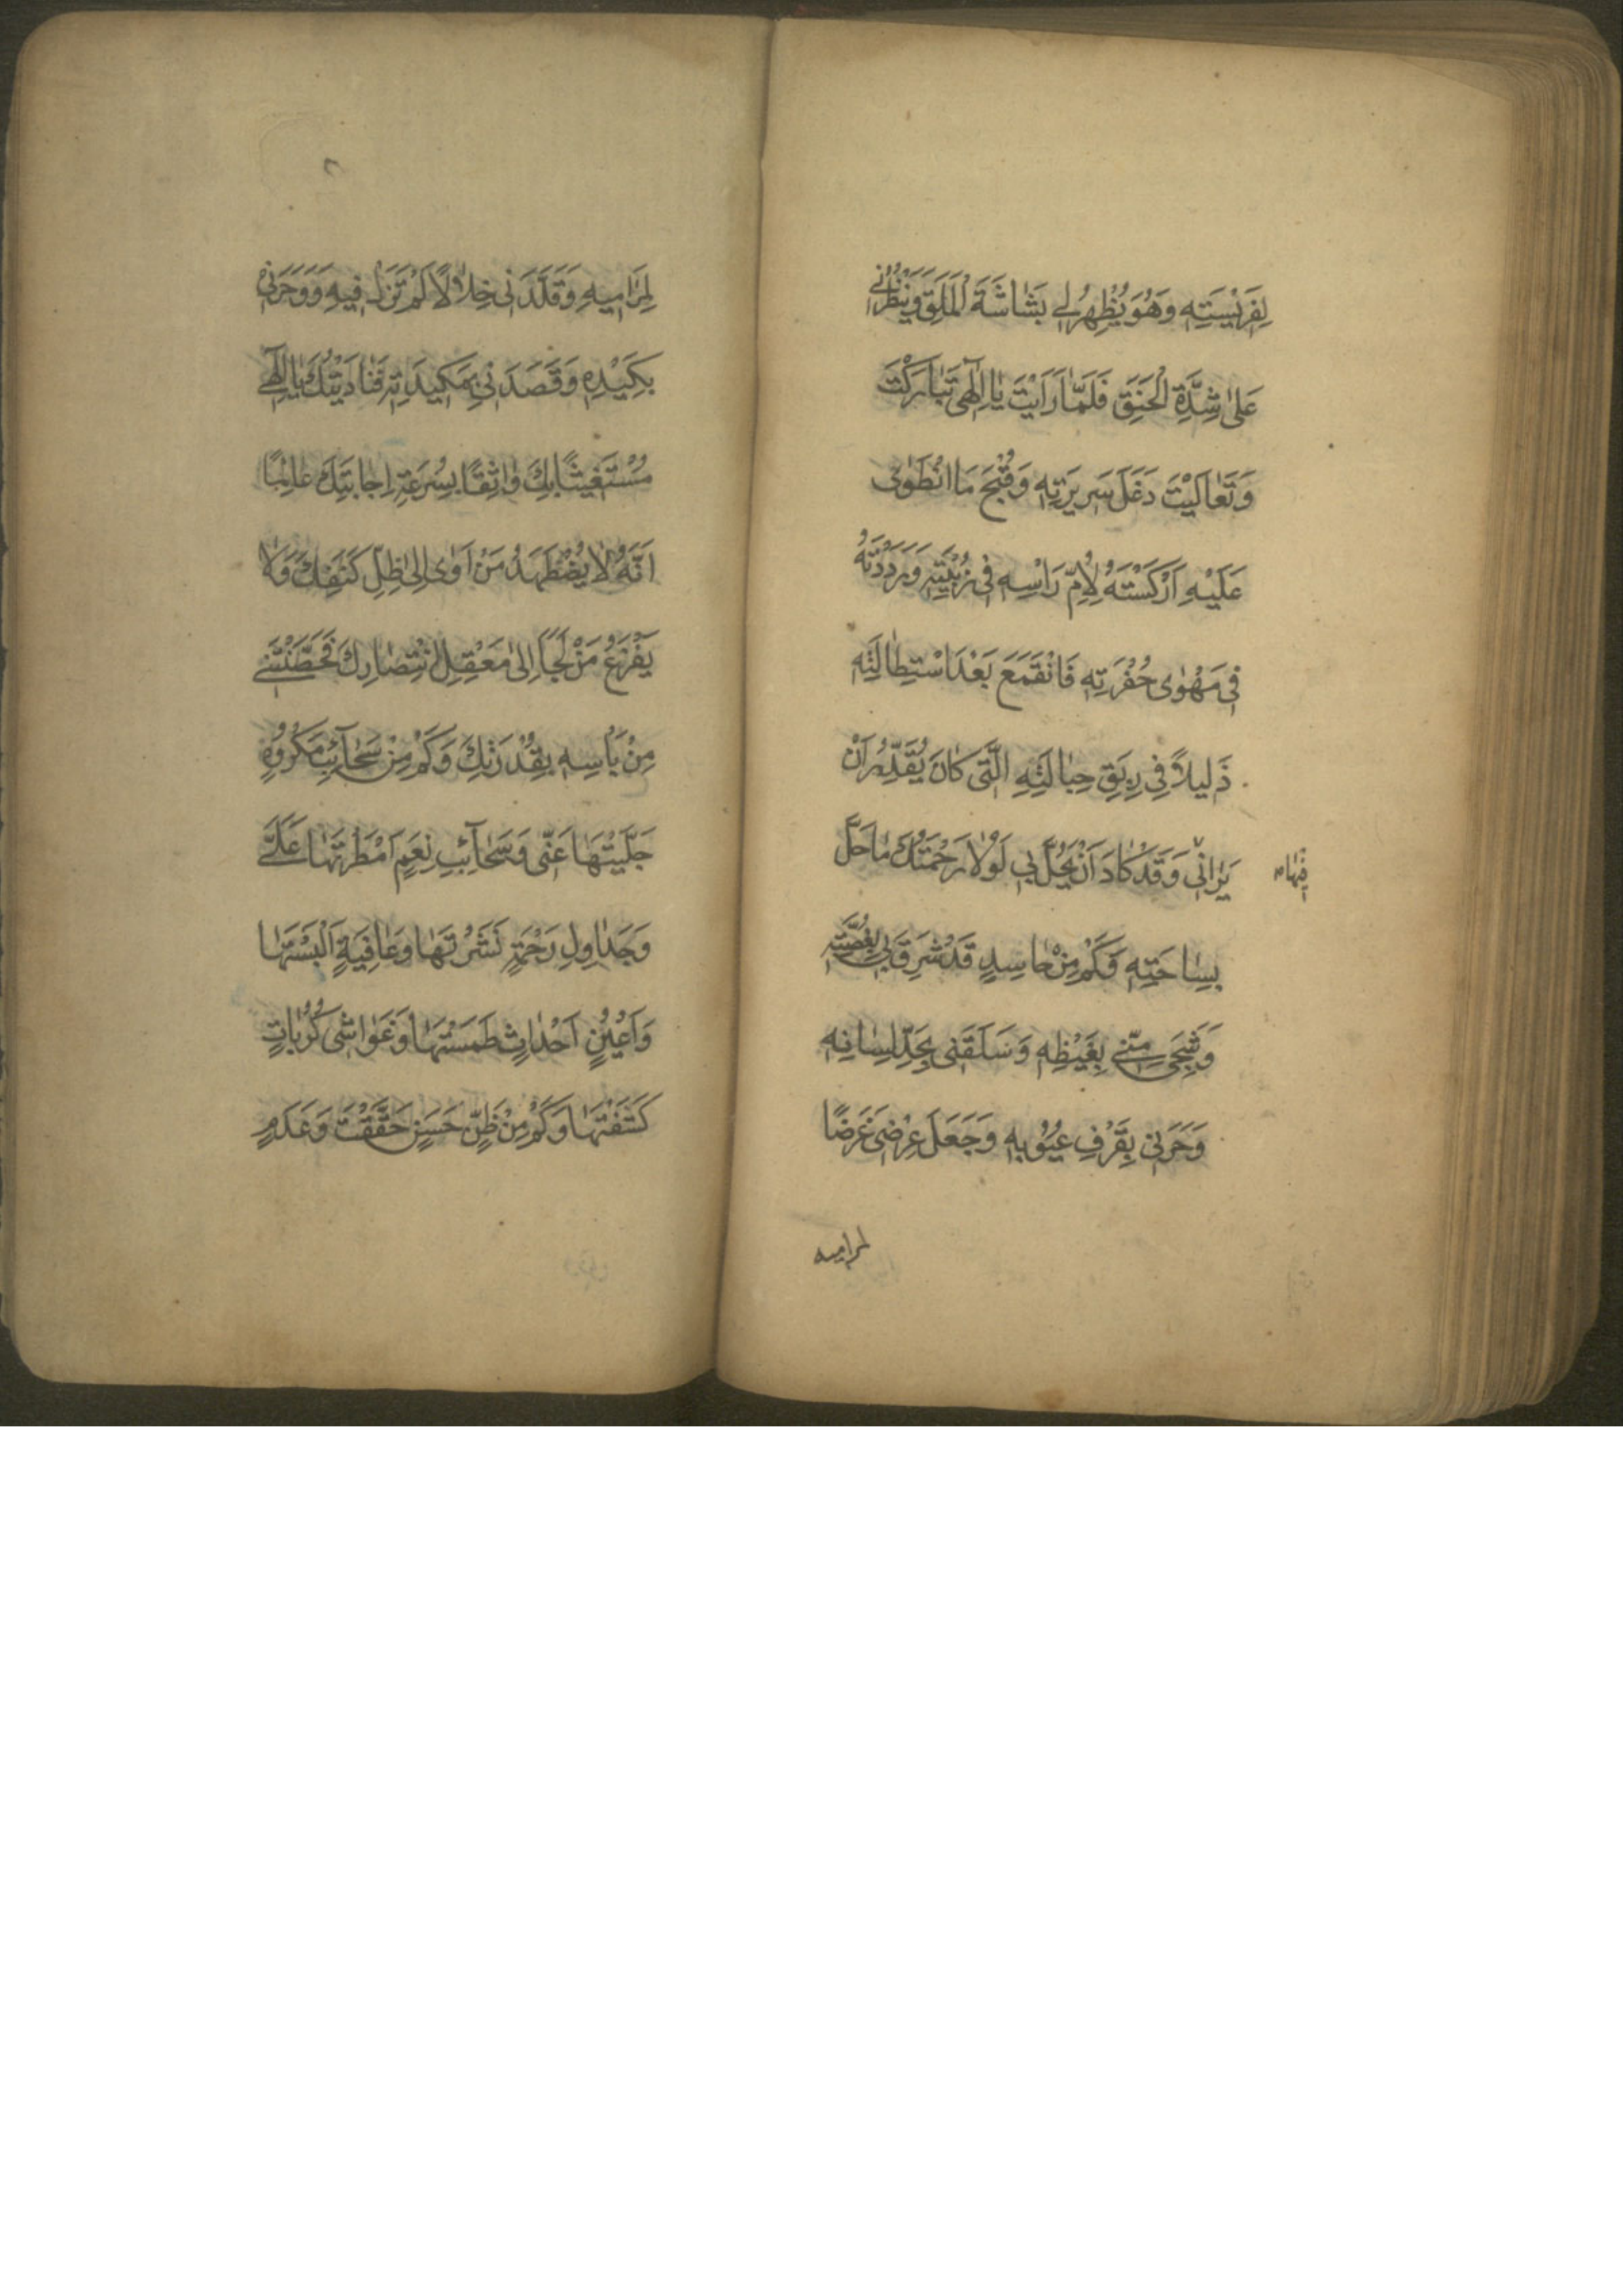 لِفَرِيْسَتِهِ وَهُوَ يُظْهِرُ لِي بَشَاشَةَ الْمَلَقِ وَيَنْظُرُنِي
عَلىٰ شِدَّةِ الْحَنَقِ فَلَمَّا رَاَيْتَ يٰا اِلٰهٰى تَبٰارَكْتَ
وَتَعٰالَيْتَ دَغَلَ سَرِيرَتِهِ وَقُبْحَ مَا انْطَوٰى
عَلَيْهِ اَرْكَسْتَهُ لِاُمِّ رَاْسِهِ فى زُبْيَتِهِ وَرَدَدْتَهُ
فى مَهْوٰى حُفْرَتِهِ فَانْقَمَعَ بَعْدَ اسْتِطٰالَتِهِ
ذَليلاً فِي رِبَقِ حِبٰالَتِهِ الَّتى كٰانَ يُقَدِّرُ اَنْ
يَرٰانى وَقَدْ كٰادَ اَنْ يَحُلَّ بي لَوْلٰا رَحْمَتُكَ مٰا حَلَّ
فِيهٰا
بِسٰاحَتِهِ وَكَمْ مِنْ حٰاسِدٍ قَدْ شَرِقَ بى بِغُصَّتِهِ
وَشَجِىَ مِنّى بِغَيْظِهِ وَسَلَقَنى بِحَدِّ لِسٰانِهِ
وَحَرَنى بِقَرْفِ عُيُوْبِهِ وَجَعَلَ عِرْضى غَرَضًا
لمراميه
لِمَرٰامِيهِ وَقَلَّدَنى خِلٰالًا لَمْ تَزَلْ فِيهِ وَوَحَرَنى
بِكَيْدِهِ وَقَصَدَنى بِمَكِيدَتِهِ فَنٰادَيْتُكَ يٰا اِلٰهى
مُسْتَغيثًا بِكَ وٰاثِقًا بِسُرْعَةِ اِجٰابَتِكَ عٰالِمًا
اَنَّهُ لٰا يُضْطَهَدُ مَنْ اَوٰى اِلىٰ ظِلِّ كَنَفِكَ وَلٰا
يَفْزَعُ مَنْ لَجَاَ اِلىٰ مَعْقِلِ انْتِصٰارِكَ فَحَصَّنْتَنى
مِنْ بَاْسِهِ بِقُدْرَتِكَ وَكَمْ مِنْ سَحٰآئِبِ مَكْرُوْهٍ
جَلَّيْتَهٰا عَنّى وَسَحٰآئِبِ نِعَمٍ اَمْطَرْتَهٰا عَلَىَّ
وَجَدٰاوِلِ رَحْمَةٍ نَشَرْتَهٰا وَعٰافِيَةٍ اَلْبَسْتَهٰا
وَاَعْيُنِ اَحْدٰاثٍ طَمَسْتَهٰا وَغَوٰاشى كُرُبٰاتٍ
كَشَفْتَهٰا وَكَمْ مِنْ ظَنٍّ حَسَنٍ حَقَّقْتَ وَعَدَمٍ